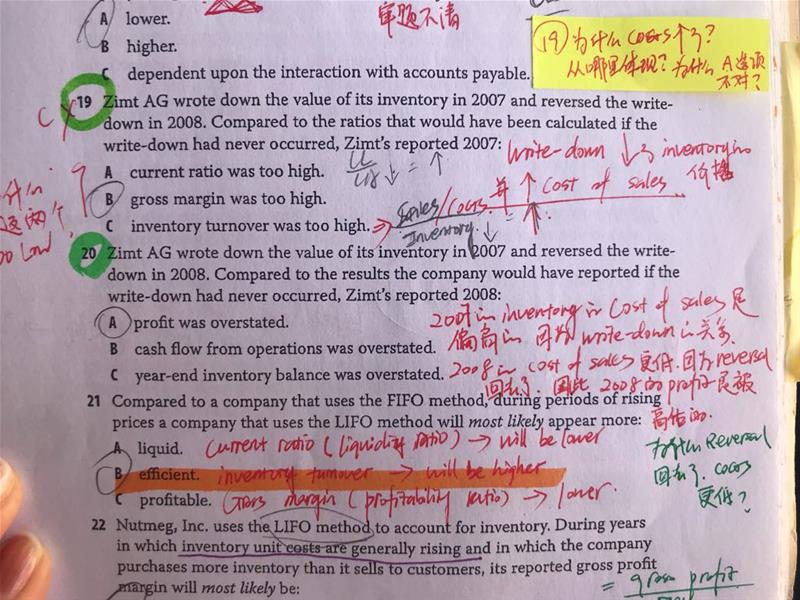 审题不清
A lower.
B higher.
C dependent upon the interaction with accounts payable.
⑲ 为什么 COGS ↑ 了?
从哪里体现? 为什么 A选项
不对?
C
19 Zimt AG wrote down the value of its inventory in 2007 and reversed the write-
down in 2008. Compared to the ratios that would have been calculated if the
write-down had never occurred, Zimt's reported 2007:
write-down ↓了 inventory的
价格
并 ↑ Cost of sales
A current ratio was too high.
B gross margin was too high.
C inventory turnover was too high. ⇒
Sales/COGS
Inventory ↓ = ↑
什么
这两个
too low
20 Zimt AG wrote down the value of its inventory in 2007 and reversed the write-
down in 2008. Compared to the results the company would have reported if the
write-down had never occurred, Zimt's reported 2008:
A profit was overstated.
B cash flow from operations was overstated.
C year-end inventory balance was overstated.
2007的 inventory的 Cost of sales 是
偏高的 因为 write-down的关系.
2008的 cost of sales 更低. 因为 reversal
回去了. 因此 2008的 profit 是被
高估的.
21 Compared to a company that uses the FIFO method, during periods of rising
prices a company that uses the LIFO method will most likely appear more:
A liquid. Current ratio (liquidity ratio) → will be lower
B efficient. inventory turnover → will be higher
C profitable. Gross margin (profitability ratio) → lower.
为什么 Reversal
回去了. COGS
更低?
22 Nutmeg, Inc. uses the LIFO method to account for inventory. During years
in which inventory unit costs are generally rising and in which the company
purchases more inventory than it sells to customers, its reported gross profit
margin will most likely be:
= gross profit